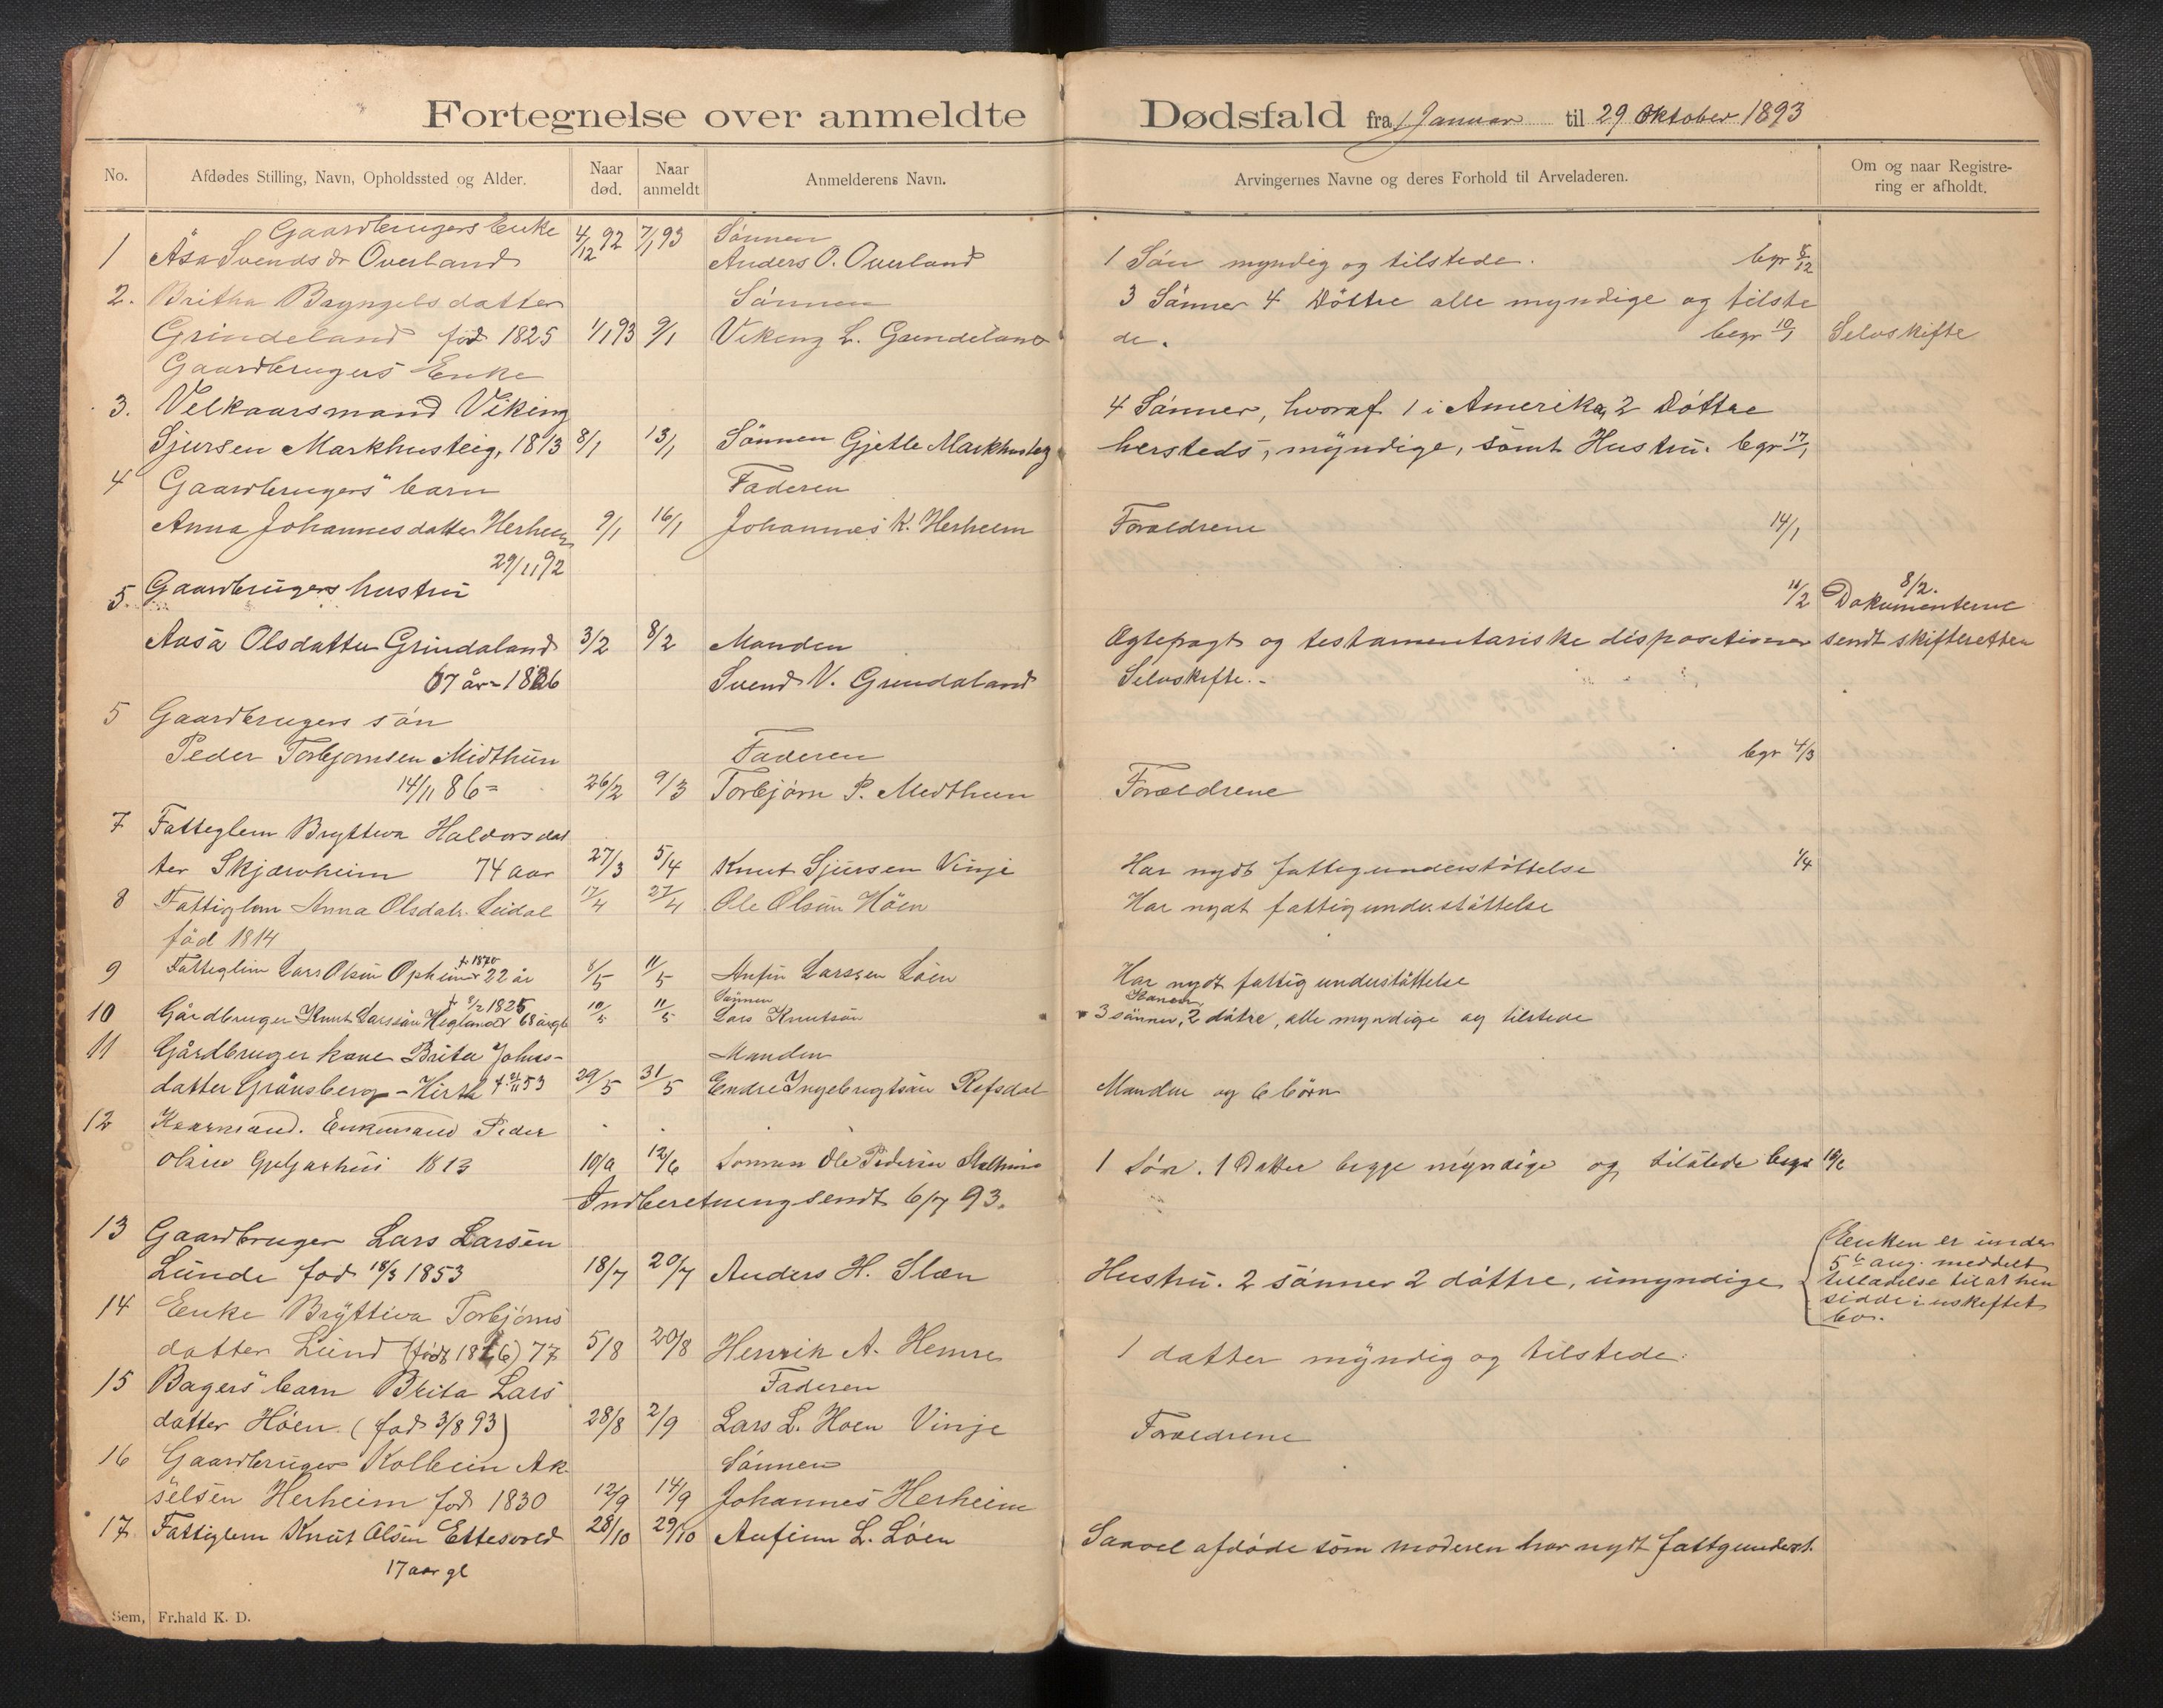 Fortegnelse over anmeldte Dødsfald fra 1 Januar til 29 Oktober 1893
No. Afdødes Stilling, Navn, Opholdssted og Alder. Naar død. Naar anmeldt Anmelderens Navn. Arvingernes Navne og deres Forhold til Arveladeren. Om og naar Registrering er afholdt.
Gaardbrugers Enke 4/12 92 7/1 93 Sönnen
1 Åsa Svendsdr Overland Anders O. Overland 1 Sön myndig og tilstede. begr 8/12
2. Britha Bryngelsdatter Sönnen 3 Sönner 4 Döttre alle myndige og tilste
Grindeland född 1825 1/1 93 9/1 Viking L. Grindeland de. begr 10/1 Selvskifte
Gaardbrugers Enke
3. Velkaarsmand Viking 4 Sönner, hvoraf 1 i Amerika, 2 Döttre
Sjursen Markhusteig, 1813 8/1 13/1 Sönnen Gjetle Markhusteg hersteds, myndige, samt Hustru. begr 17/1
4 Gaardbrugers barn Faderen
Anna Johannesdatter Herheim 9/1 16/1 Johannes K. Herheim Forældrene 14/1
29/11 92
5. Gaardbrugers hustru 11/2 8/2. Dokumenterne
Aasa Olsdatter Grindaland 3/2 8/2 Manden Ægtepagt og testamentariske dispositioner sendt skifteretten
67 år - 1826 Svend V. Grindaland Selvskifte. -
5 Gaardbrugers sön
Peder Torbjornsen Midthun Faderen begr 4/3
14/11 86 = 26/2 9/3 Torbjörn P. Midthun Forældrene
7 Fatteglem Bryttva Haldorsdat
ter Skjærvheim 74 aar 27/3 5/4 Knut Sjursen Vinje Har nydt fattigunderstöttelse 1/4
8 Fattiglem Anna Olsdatr. Leidal 17/4 27/4 Ole Olsen Höen Har nydt fattigunderstöttelse
född 1814
9 Fatteglim Lars Olsen Opheim f. 1870 22 år 8/5 11/5 Anfin Larssen Löen Har nydt fattigunderstöttelse
10 Gårdbruger Knut Larssön Hegland 8/2 1825 68 årgl 10/5 11/5 Sönnen Lars Knutsön Konen, 3 sönner, 2 dötre, alle myndige og tilstede
11 Gårdbruger kone Brita Johns- Manden
datter Grånsberg - Hirth f. 53 29/5 31/5 Endre Ingebrigtsön Refsdal Manden og 6 börn
12 Kaarmand. Enkemand Peder
Olsen 1813 10/6 12/6 Sönnen Ole Pedersen 1 Sön. 1 Datter begge myndige og tilstede begr 16/6
Indberetning sendt 6/7 93.
13 Gaardbruger Lars Larsen
Lunde fod 18/3 1853 18/7 20/7 Anders H. Slæn Hustru. 2 sönner 2 döttre, umyndige Enken er under
5te aug. meddelt
tilladelse til at hen
sidde i uskiftet
bo.
14 Enke Bryttiva Torbjörns
datter Lund (född 1816) 77 5/8 20/8 Henrik A. Hemre 1 datter myndig og tilstede.
15 Bagers barn Brita Lars Faderen
datter Höen. (fod 3/8 93) 28/8 2/9 Lars L. Hoen Vinje Forældrene
16 Gaardbruger Kolbein Ak- Sönnen
selsen Herheim fod 1830 12/9 14/9 Johannes Herheim
17 Fattiglem Knut Olsen Ettesvold 28/10 29/10 Anfinn L. Löen Saavel afdöde som moderen har nydt fattgunderst.
17 aar gl
Sem, Fr.hald K. D.